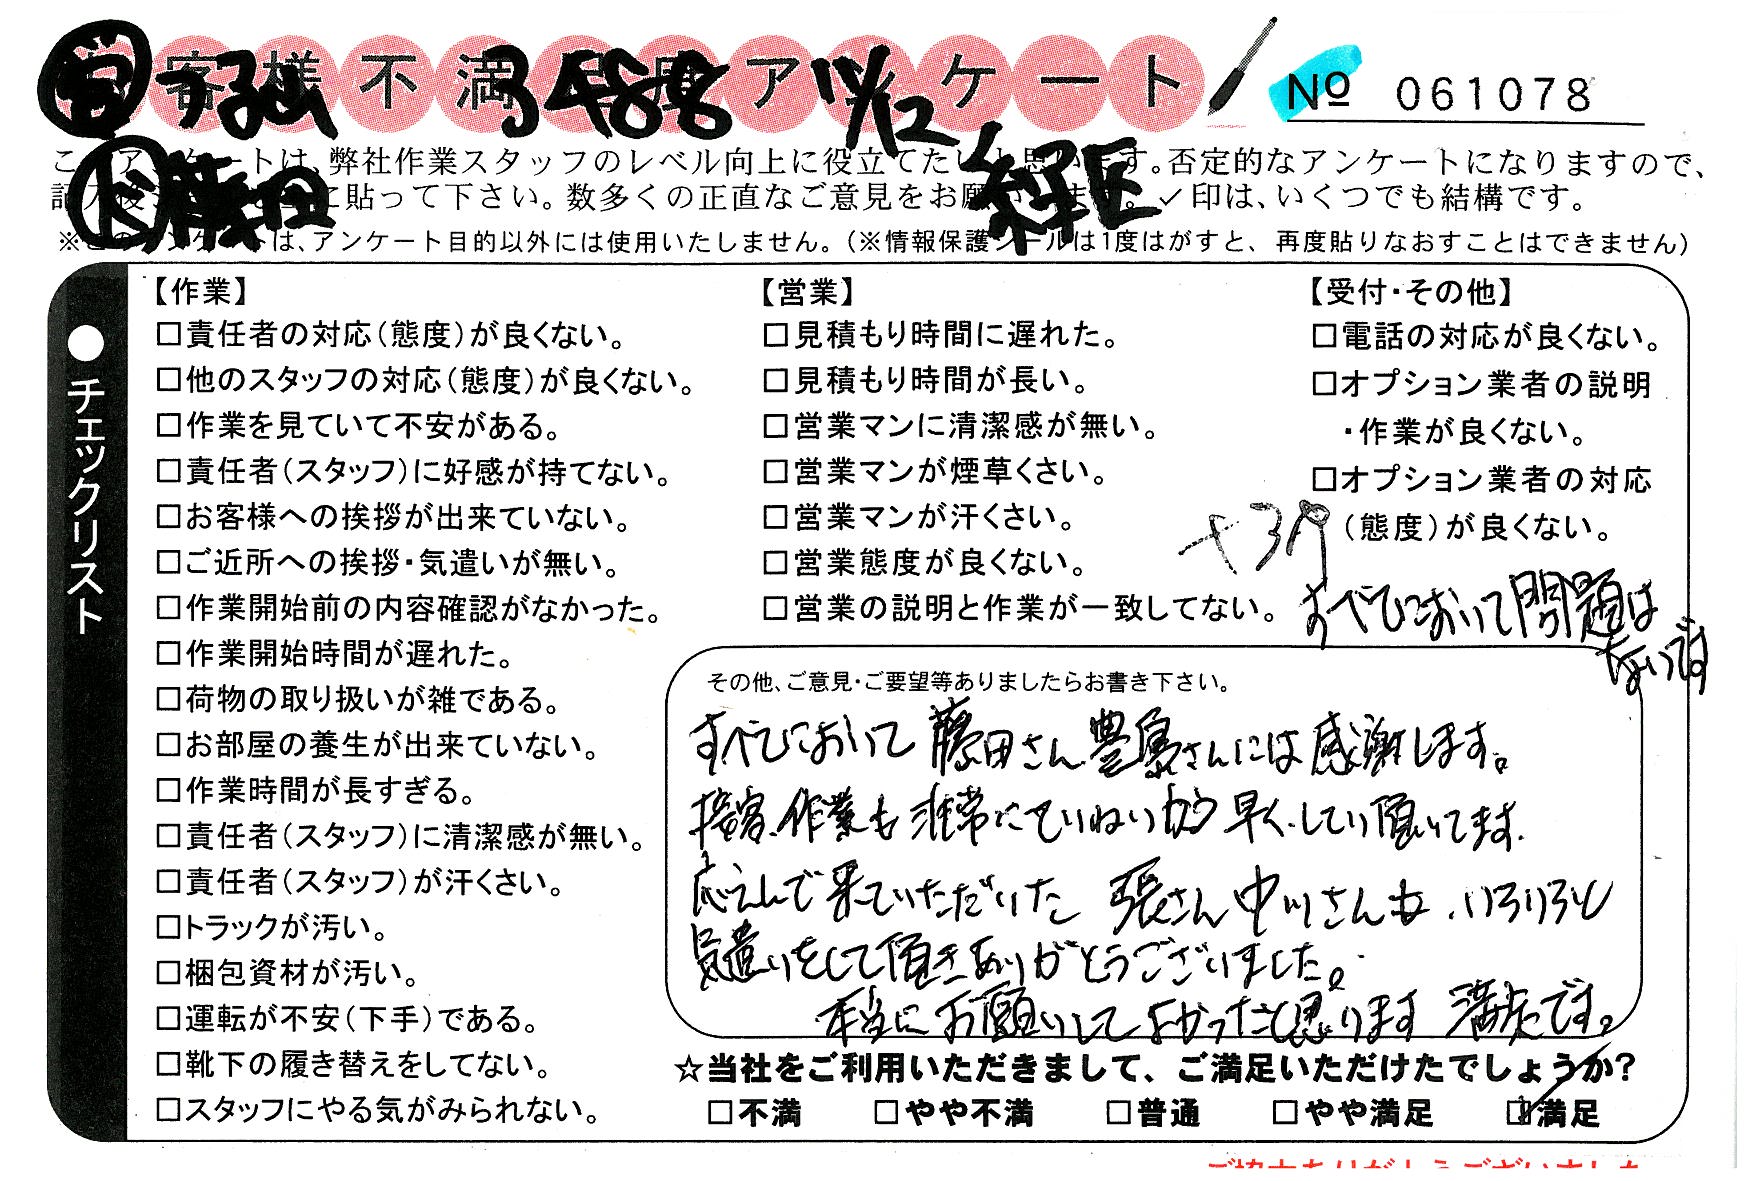 客様不満 ア ケート
№ 061078
3488 11/12
このアンケートは、弊社作業スタッフのレベル向上に役立てたいと思います。否定的なアンケートになりますので、
に貼って下さい。数多くの正直なご意見をお願いします。✓印は、いくつでも結構です。
※このアンケートは、アンケート目的以外には使用いたしません。（※情報保護シールは1度はがすと、再度貼りなおすことはできません）
●チェックリスト
【作業】
□責任者の対応（態度）が良くない。
□他のスタッフの対応（態度）が良くない。
□作業を見ていて不安がある。
□責任者（スタッフ）に好感が持てない。
□お客様への挨拶が出来ていない。
□ご近所への挨拶・気遣いが無い。
□作業開始前の内容確認がなかった。
□作業開始時間が遅れた。
□荷物の取り扱いが雑である。
□お部屋の養生が出来ていない。
□作業時間が長すぎる。
□責任者（スタッフ）に清潔感が無い。
□責任者（スタッフ）が汗くさい。
□トラックが汚い。
□梱包資材が汚い。
□運転が不安（下手）である。
□靴下の履き替えをしてない。
□スタッフにやる気がみられない。
【営業】
□見積もり時間に遅れた。
□見積もり時間が長い。
□営業マンに清潔感が無い。
□営業マンが煙草くさい。
□営業マンが汗くさい。
□営業態度が良くない。
□営業の説明と作業が一致してない。
【受付・その他】
□電話の対応が良くない。
□オプション業者の説明
・作業が良くない。
□オプション業者の対応
（態度）が良くない。
すべてにおいて問題は
ないです
その他、ご意見・ご要望等ありましたらお書き下さい。
すべてにおいて藤田さん豊島さんには感謝します。
接客、作業も非常にていねいかつ早くしてい頂いてます。
応えんで来ていただいた 張さん中川さんも、いろいろと
気遣いをして頂きありがとうございました。
本当にお願いしてよかったと思います 満足です。
☆当社をご利用いただきまして、ご満足いただけたでしょうか?
□不満 □やや不満 □普通 □やや満足 ☑満足
ご協力ありがとうございました